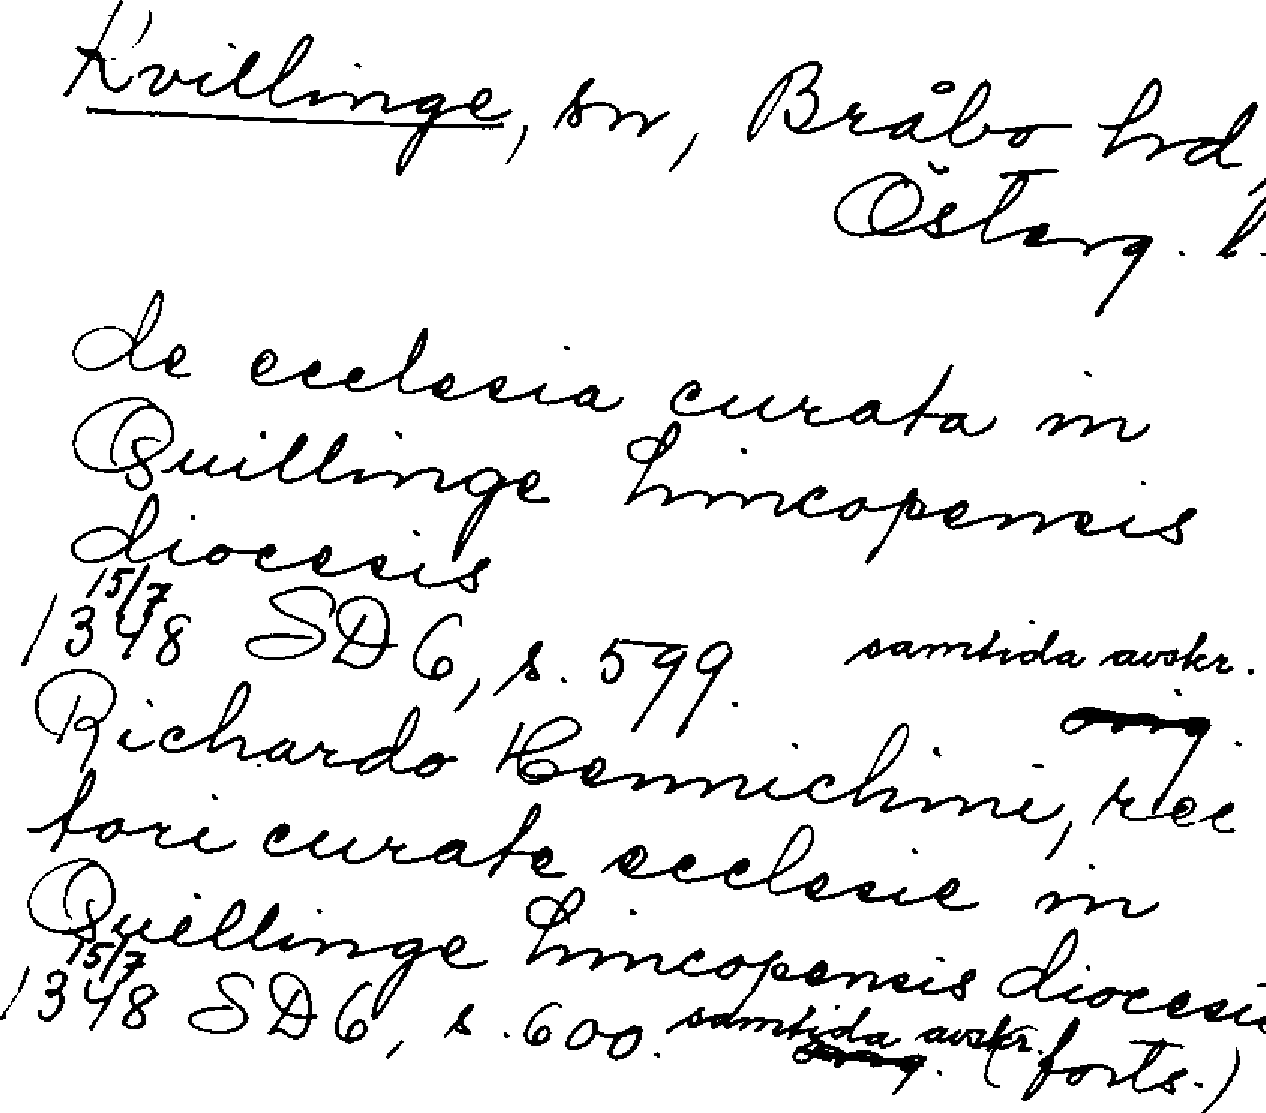 Kvillinge, sn, Bråbo hd,
Österg. l.
de ecclesia curata in
Quillinge Lincopensis
diocesis
15/7
1348 SD 6, s. 599. samtida avskr.
orig.
Richardo Hennichini, rec
tori curate ecclesie in
Quillinge Lincopensis diocesis
15/7
1348 SD 6, s. 600. samtida avskr.
orig. (forts.)